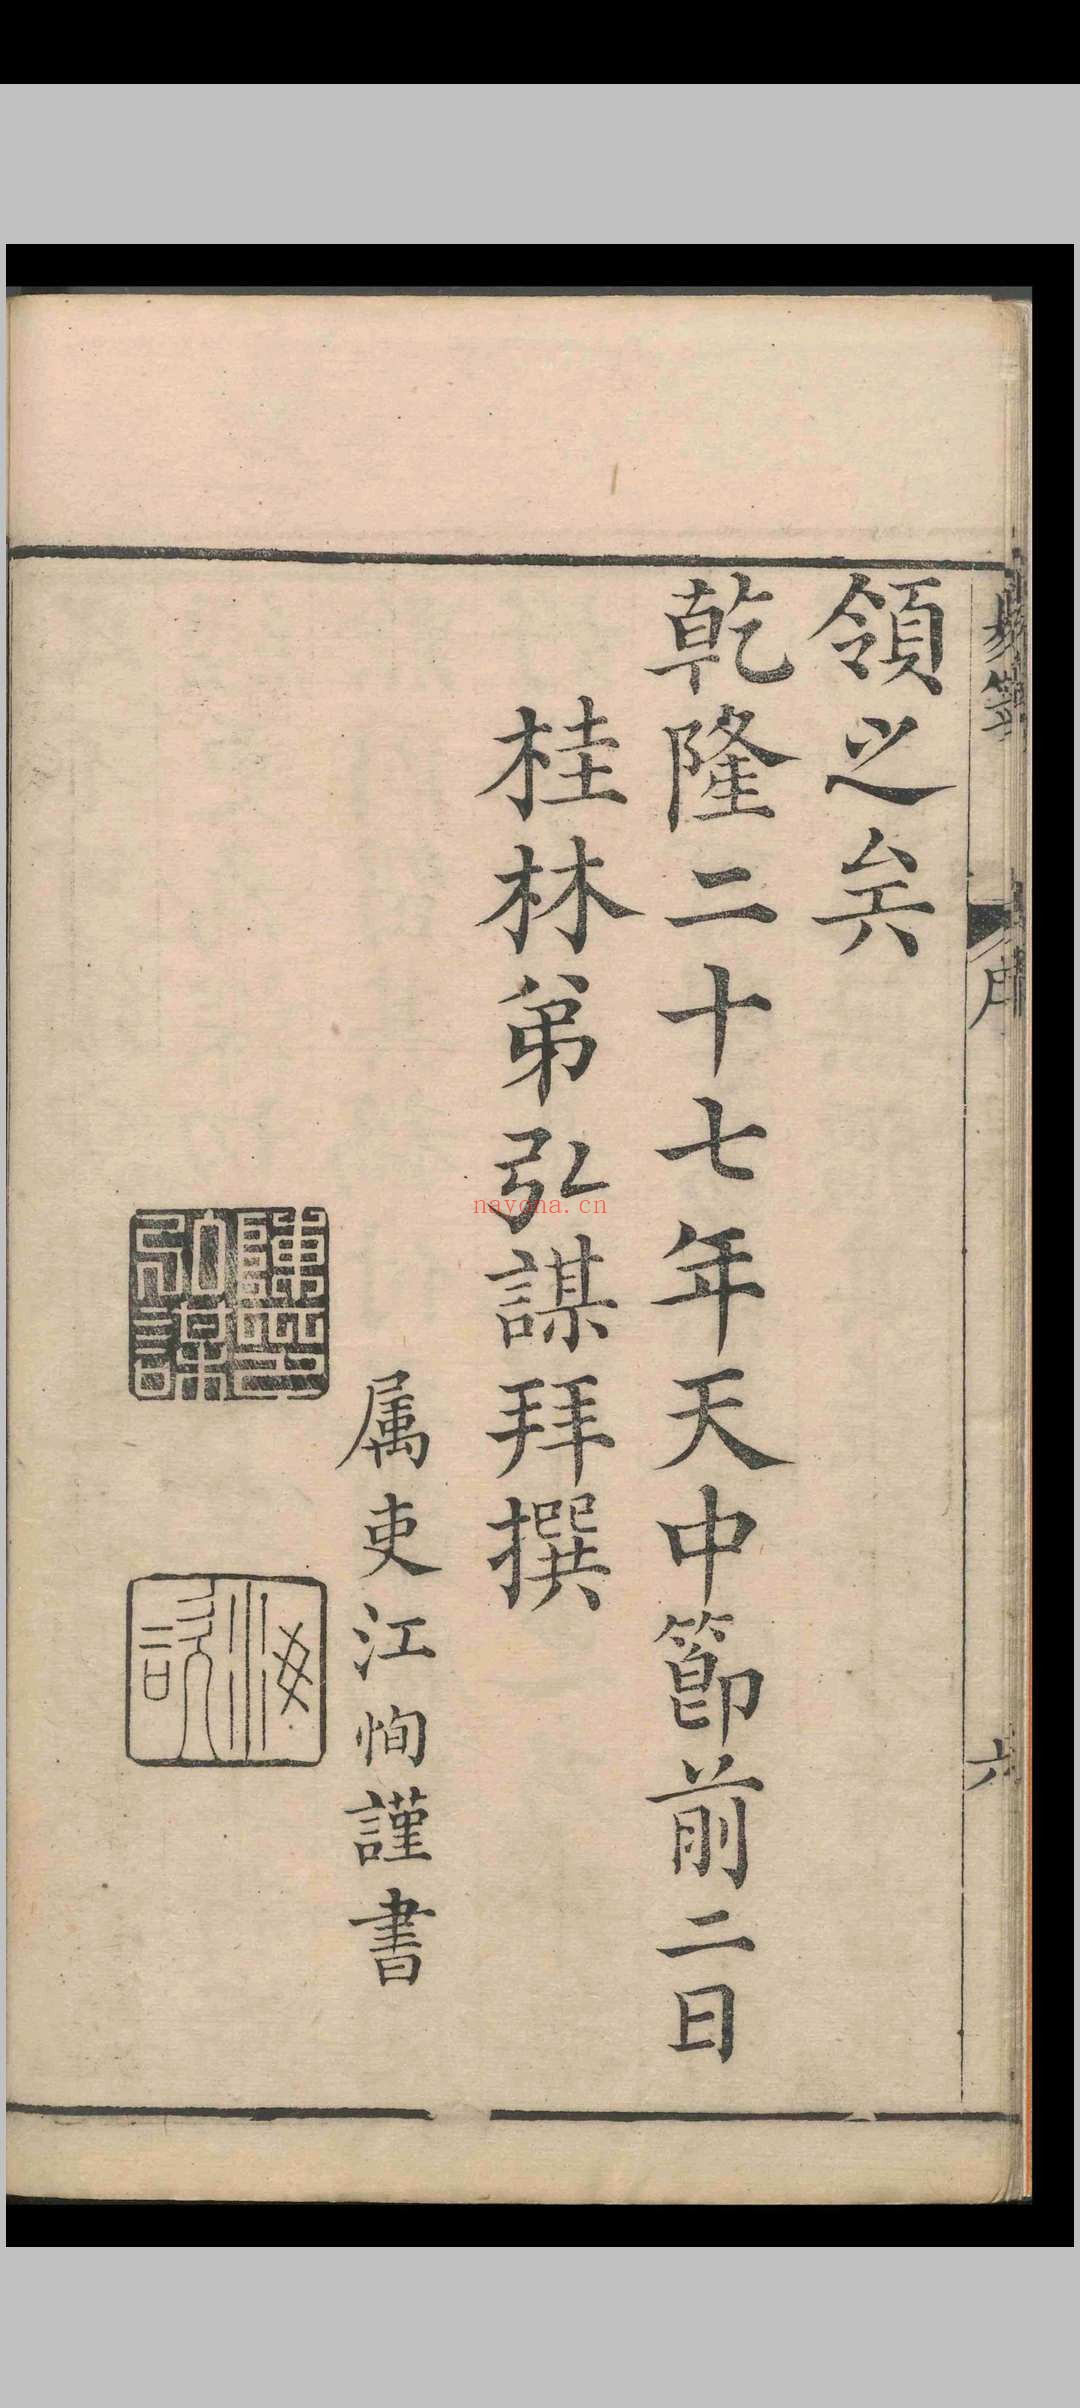 領之矣
乾隆二十七年天中節前二日
桂林弟弘謀拜撰
属吏江恂謹書
陳弘謀印
序
六
nayona.cn